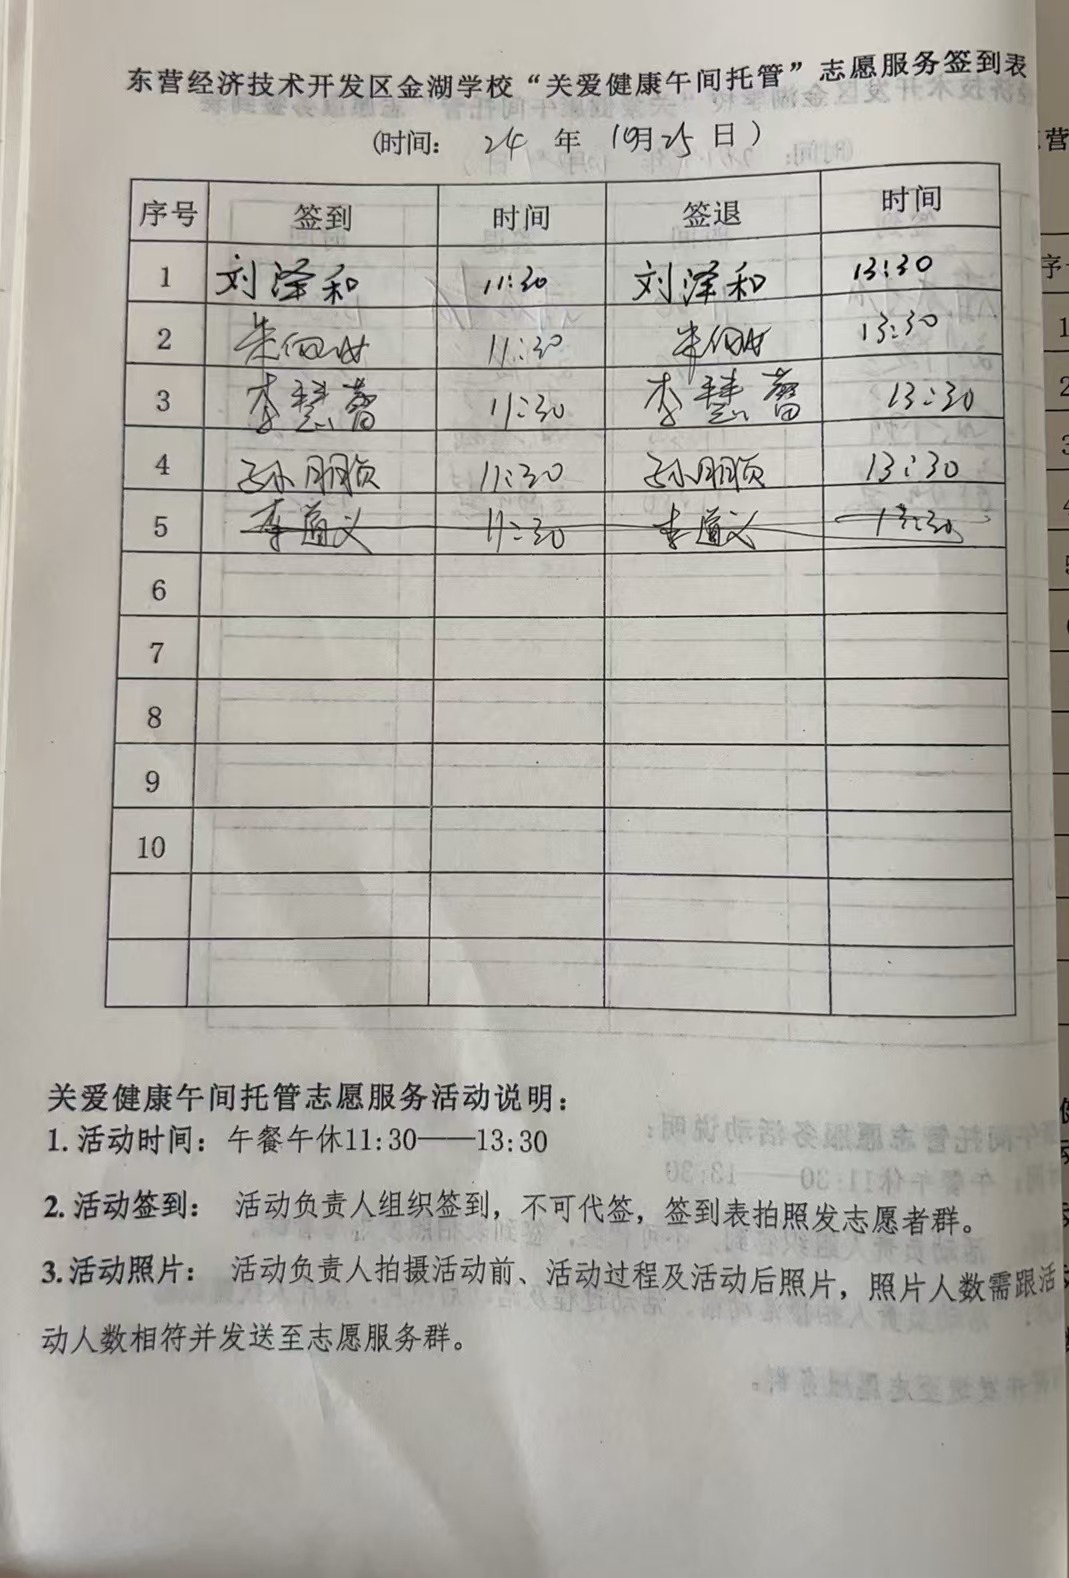 东营经济技术开发区金湖学校“关爱健康午间托管”志愿服务签到表
(时间： 24 年 10月25 日)
序号 签到 时间 签退 时间
1 刘泽和 11:30 刘泽和 13:30
2 朱 11:30 朱 13:30
3 李慧蕾 11:30 李慧蕾 13:30
4 孙朋贞 11:30 孙朋贞 13:30
5 李道义 11:30 李道义 13:30
6
7
8
9
10
关爱健康午间托管志愿服务活动说明：
1.活动时间：午餐午休11:30——13:30
2.活动签到： 活动负责人组织签到，不可代签，签到表拍照发志愿者群。
3.活动照片： 活动负责人拍摄活动前、活动过程及活动后照片，照片人数需跟活
动人数相符并发送至志愿服务群。